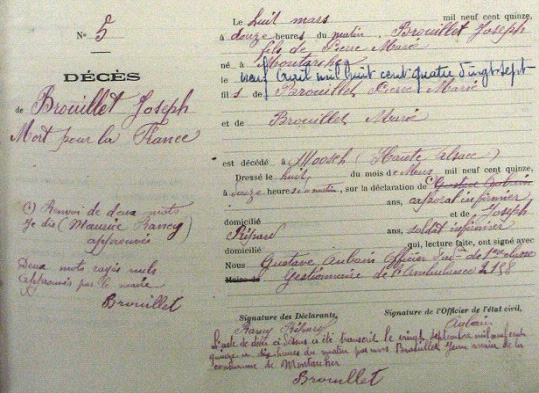 N° 5
DÉCÈS
de Brouillet Joseph
Mort pour la France
(1) Renvoi de deux mots
Je dis (Maurice Rancy)
approuvés
Deux mots rayés nuls
approuvés par le maire
Brouillet
Le huit mars mil neuf cent quinze,
à douze heures du matin, Brouillet Joseph
fils de Pierre Marie
né à Montarcher
le neuf avril mil huit cent quatre vingt sept
fils de Brouillet Pierre Marie
et de Brouillet Marie
est décédé à Moosch (Haute Alsace)
Dressé le huit, du mois de Mars, mil neuf cent quinze,
à douze heures du matin, sur la déclaration de Gustave Aubain
ans, caporal infirmier
domicilié et de Joseph
Répary ans, soldat infirmier
domicilié qui, lecture faite, ont signé avec
Nous Gustave Aubain Officier d'adm. de 1ère classe
Maire de Gestionnaire de l'Ambulance 2/58
Signature des Déclarants, Signature de l'Officier de l'état civil,
Rancy Répary Aubain
L'acte de décès ci dessus a été transcrit le vingt septembre mil neuf cent
quinze à dix heures du matin par nous Brouillet maire de la
commune de Montarcher
Brouillet